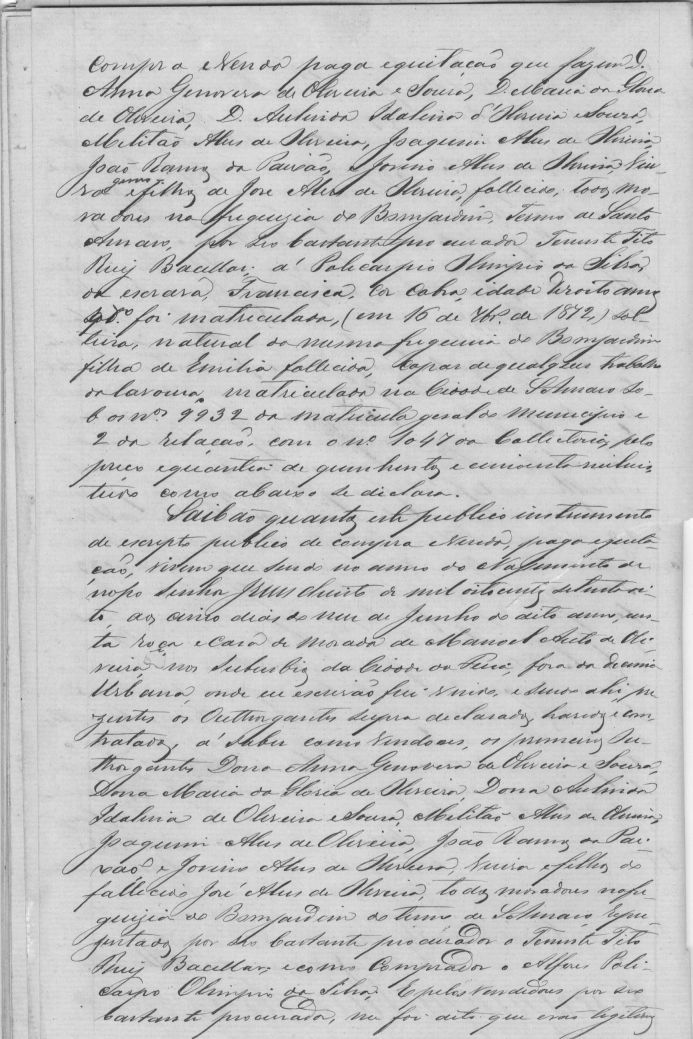 Compra e Venda paga e quitacaõ que fazem D.
Anna Genovera de Oliveira e Souza, D. Maria da Gloria
de Oliveira, D. Aulinda Idalina d'Oliveira e Souza,
Melitaõ Alves de Oliveira, Joaquim Alves de Oliveira,
Joaõ Ramos da Paixaõ, e Jovino Alves de Oliveira, Viu-
va genros e filhos de José Alves de Oliveira, fallecido, todos mo-
radores na freguezia do Bomjardim, Termo de Santo
Amaro, por seo bastante procurador Tenente Tito
Ruy Bacellar; á Policarpio Olimpio da Silva,
da escrava, Francisca, cor Cabra, idade dezoito annos
qdº foi matriculada, (em 16 de 7br. de 1872,) sol-
teira, natural da mesma freguezia do Bomjardim
filha de Emilia fallecida, capaz de qualquer trabalho
da lavoura, matriculada na Cidade de S. Amaro so-
b os nos 9932 da matricula geral do municipio e
2 da relacaõ, com o nº 1047 da Collectoria, pelo
preço e quantia de quinhentos e cincoenta mil reis,
tudo como abaixo se declara.
Saibaõ quantos este publico instrumento
de escripto publico de compra e Venda, paga e quita-
caõ, virem que sendo no anno do Nascimento de
nosso Senhor Jesus Christo de mil oitocentos setenta e oi-
to, aos cinco dias do mez de Junho do dito anno, nes-
ta roça e casa de morada de Manoel Auto de Oli-
veira, nos suburbios da Cidade da Feira, fora da decima
Urbana, onde eu escrivaõ fui vindo, e sendo ahi, pre-
zentes os Outhorgantes supra declarados, havidos e con-
tratados, á saber como Vendores, os primeiros Ou-
thorgantes Dona Anna Genovera de Oliveira e Souza,
Dona Maria da Gloria de Oliveira Dona Aulinda
Idalina de Oliveira e Souza, Melitaõ Alves de Oliveira,
Joaquim Alves de Oliveira, Joaõ Ramos da Pai-
xaõ e Jovino Alves de Oliveira, Viuva e filhos do
fallecido José Alves de Oliveira, todos moradores na fre-
guezia do Bomjardim do termo de S. Amaro, repre-
zentados por seo bastante procurador o Tenente Tito
Ruy Bacellar, e como Comprador o Alferes Poli-
carpo Olimpio da Silva, E pelos Vendedores por seo
bastante procurador, me foi dito que eraõ legitimos